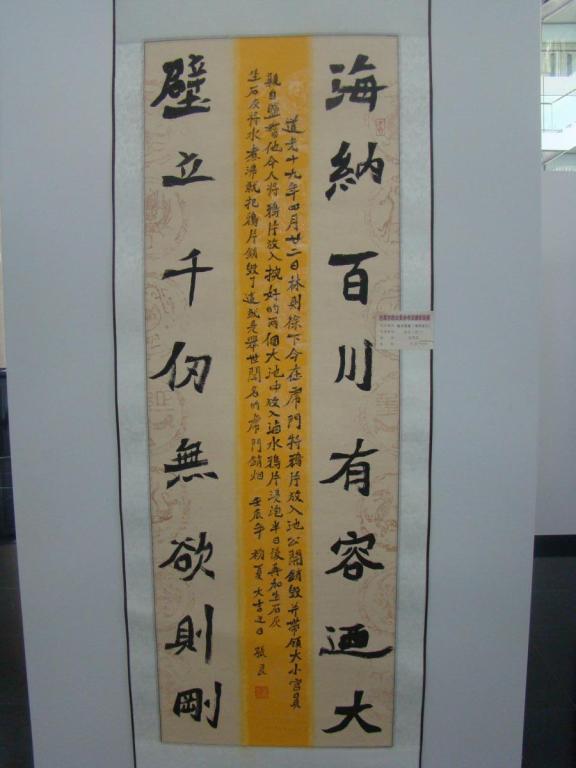 海納百川有容迺大
道光十九年四月廿二日林則徐下令在虎門將鴉片放入池公開銷毀并帶領大小官員
親自監督他令人將鴉片放入挖好的兩個大池中放入鹵水鴉片浸泡半日後再加生石灰
生石灰將水煮沸就把鴉片銷毀了這就是舉世聞名的虎門銷烟 壬辰年初夏大吉之日 張
壁立千仞無欲則剛